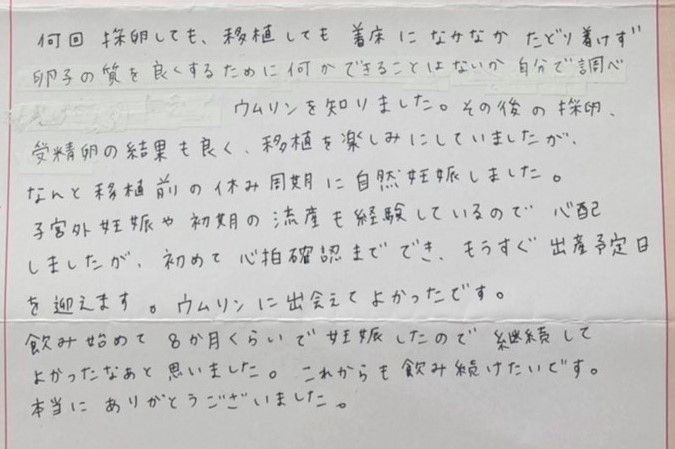 何回 採卵しても、移植しても 着床 に なかなか たどり着けず
卵子の質を良くするために何かできることはないか 自分で調べ
ウムリンを知りました。その後の 採卵、
受精卵の結果も良く、移植を楽しみにしていましたが、
なんと移植前の休み周期に自然妊娠しました。
子宮外妊娠や初期の流産も経験しているので 心配
しましたが、初めて 心拍確認まで でき、もうすぐ 出産予定日
を迎えます。ウムリンに出会えてよかったです。
飲み始めて 8か月くらいで妊娠したので 継続して
よかったなあと 思いました。これからも飲み続けたいです。
本当に ありがとうございました。